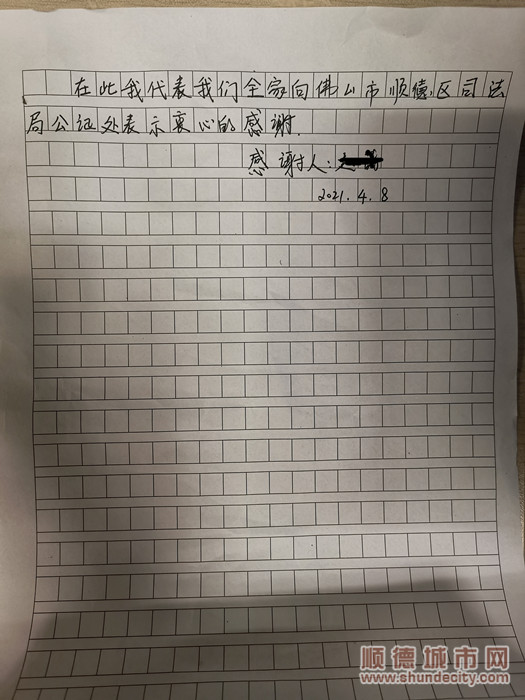 在此我代表我们全家向佛山市顺德区司法
局公证处表示衷心的感谢.
感谢人:
2021.4.8
顺德城市网
www.shundecity.com